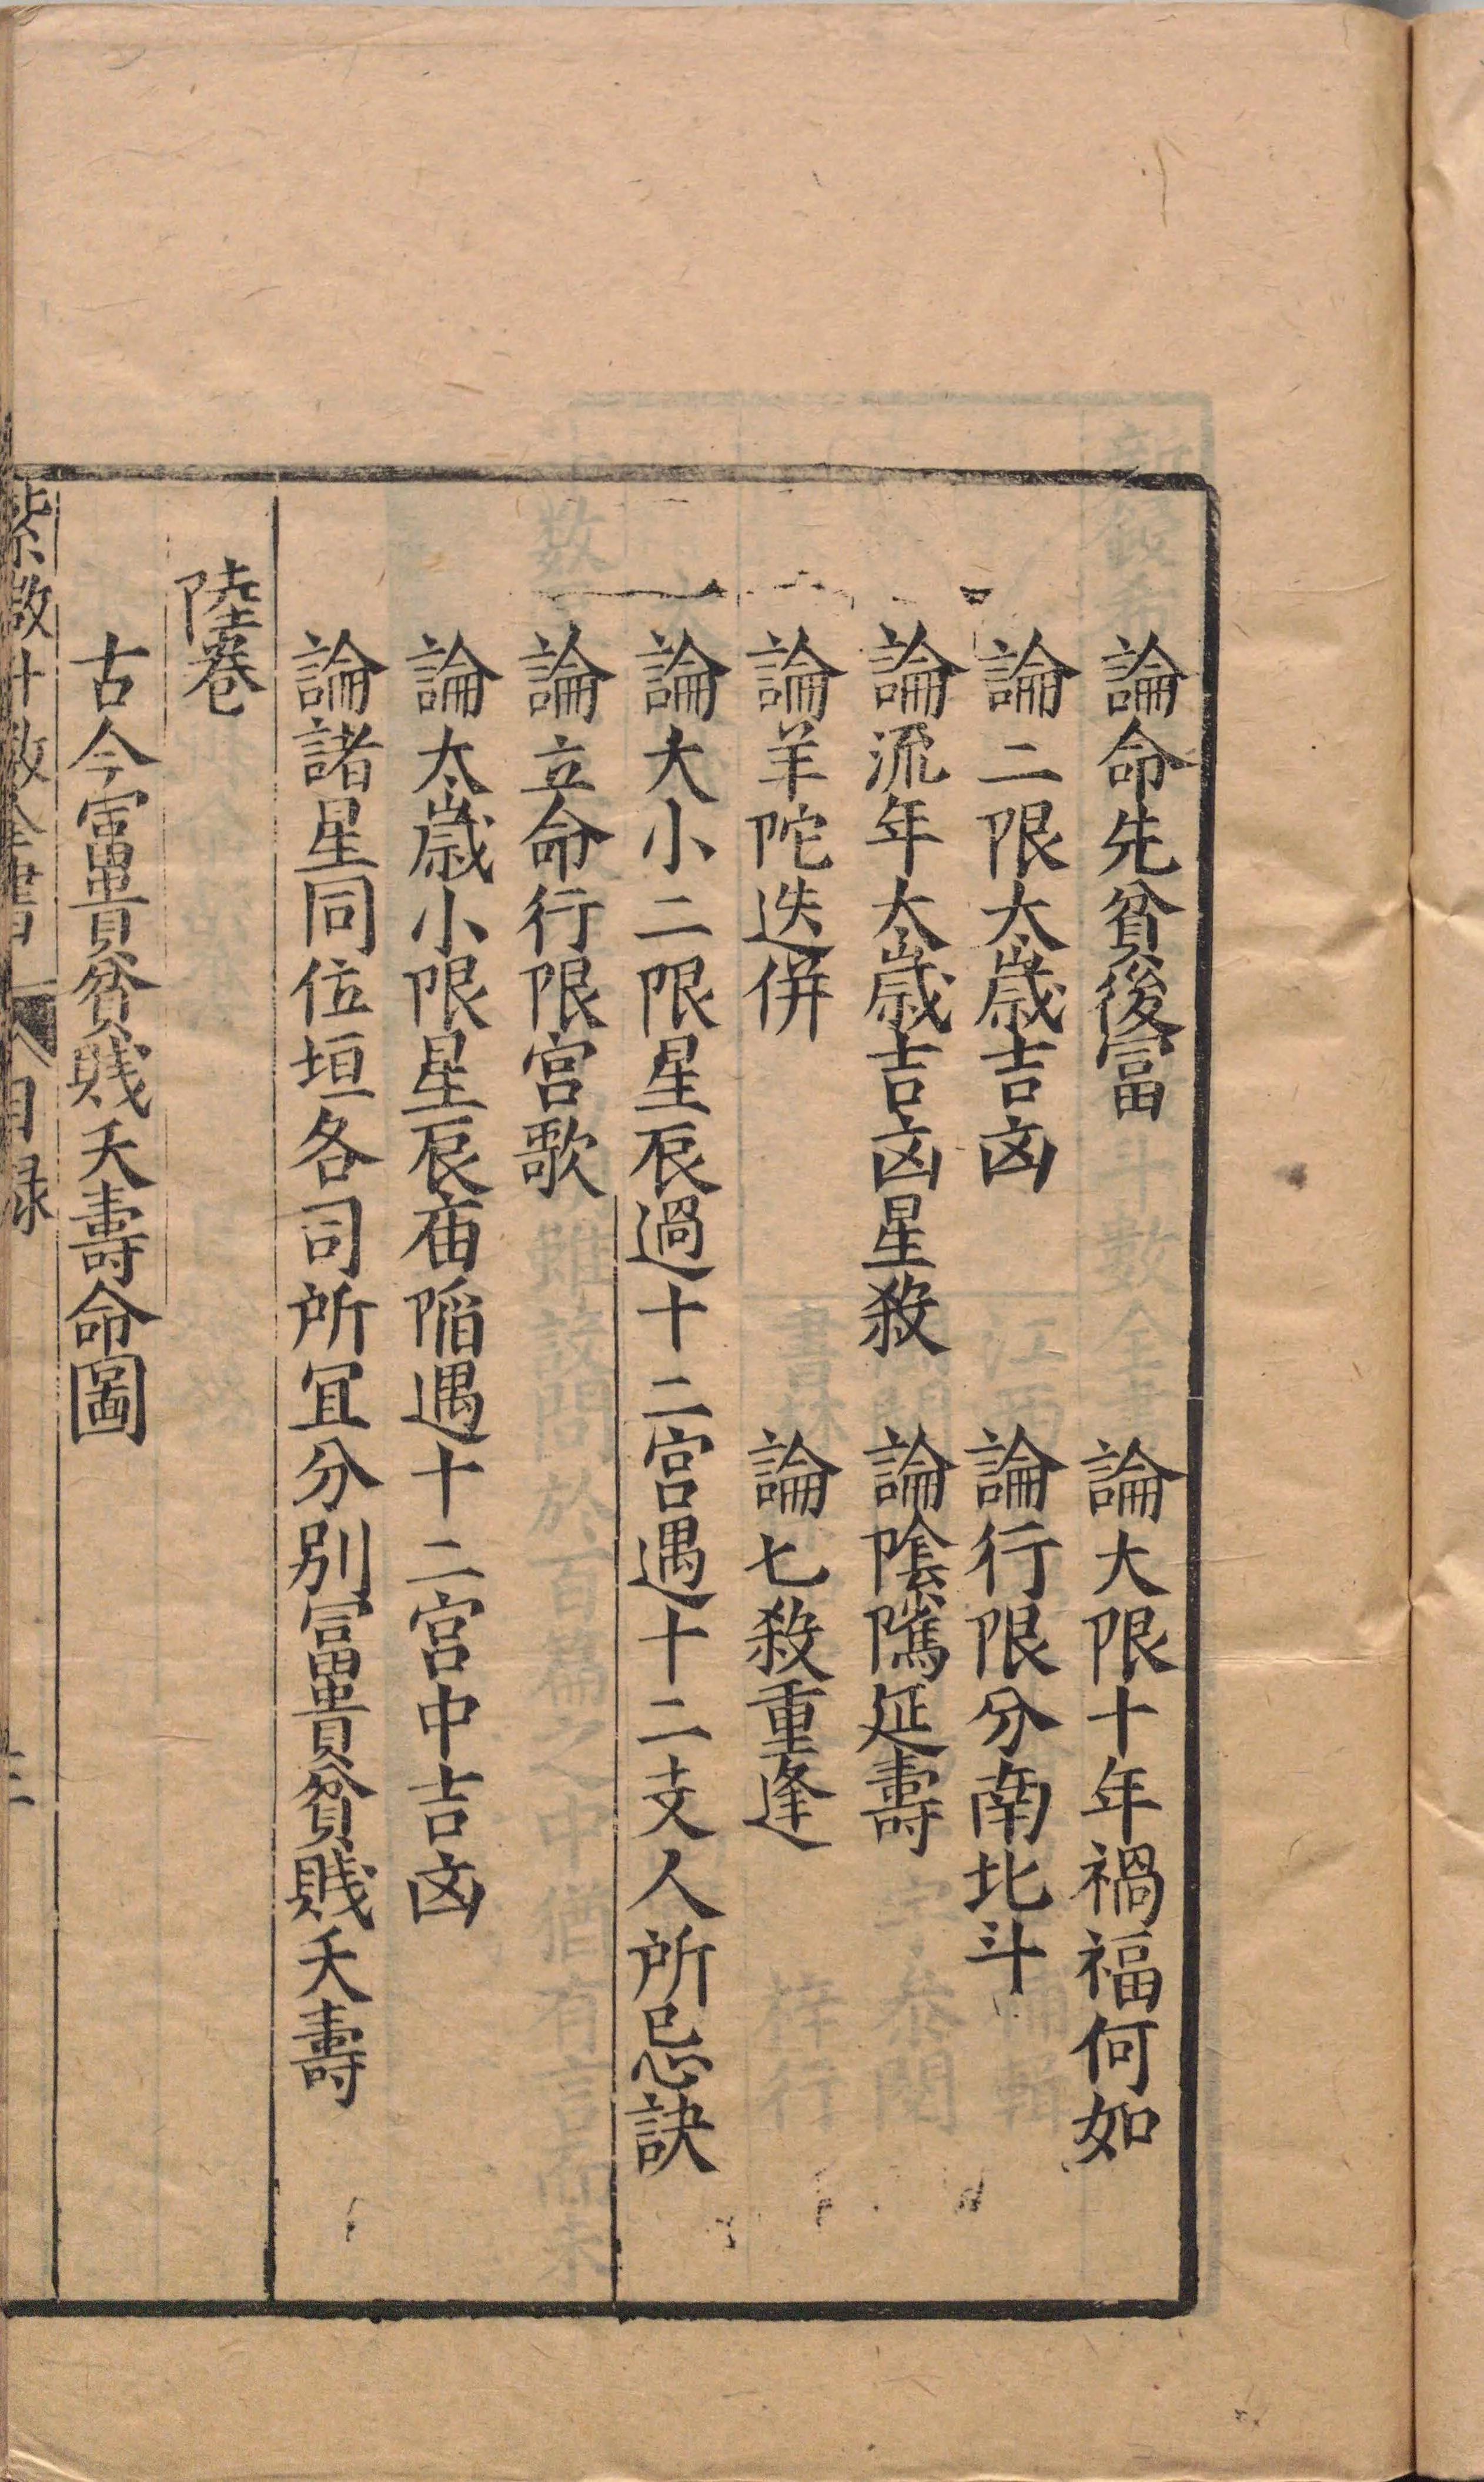 論命先貧後富　論大限十年禍福何如
論二限太歲吉凶　論行限分南北斗
論流年太歲吉凶星殺　論陰隲延壽
論羊陀迭併　論七殺重逢
論大小二限星辰過十二宮遇十二支人所忌訣
論立命行限宮歌
論太歲小限星辰庙陷遇十二宮中吉凶
論諸星同位垣各司所宜分別富貴貧賤夭壽
陸巻
古今富貴貧賤夭壽命圖
紫微斗数全書　目録　三